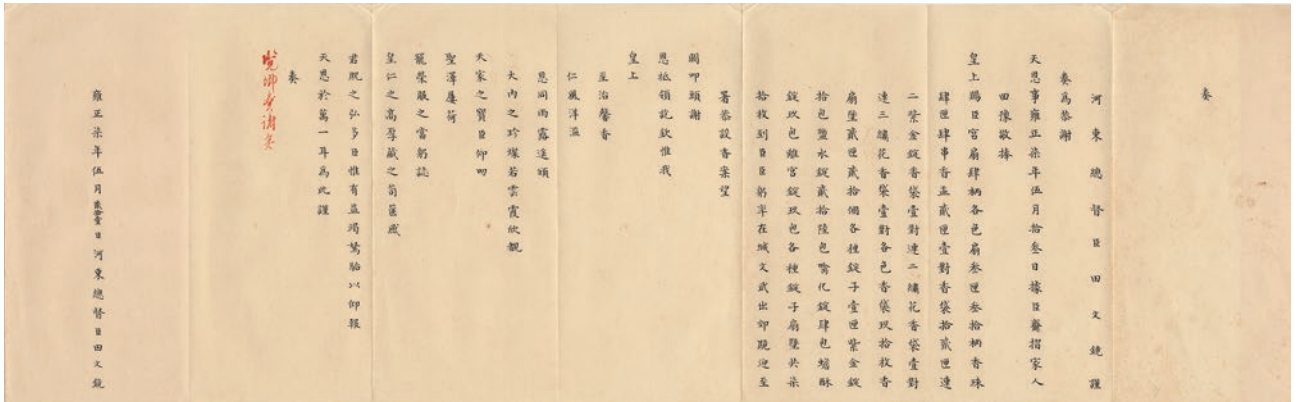 奏
河東總督臣田文鏡謹
奏為恭謝
天恩事雍正柒年伍月拾叁日據臣齎摺家人
田像敬捧
皇上賜臣宮扇肆柄各色扇叁匣叁拾柄香珠
肆匣肆事香盂貳匣壹對香袋拾貳匣連
二紫金錠香袋壹對連二繡花香袋壹對
連三繡花香袋壹對各色香袋玖拾枚香
扇墜貳匣貳拾個各種錠子壹匣紫金錠
拾包鹽水錠貳拾陸包噙化錠肆包蟾酥
錠玖包離宮錠玖包各種錠子扇墜共柒
拾枚到臣臣躬率在城文武出郊跪迎至
署恭設香案望
闕叩頭謝
恩祗領訖欽惟我
皇上
至治馨香
仁風洋溢
恩同雨露遙頒
大內之珍燦若雲霞欣覩
天家之寶臣仰叨
聖澤屢荷
寵榮服之當躬誌
皇仁之高厚藏之笥篋感
君貺之弘多臣惟有益竭駑駘以仰報
天恩於萬一耳為此謹
奏
覽卿奏謝矣
雍正柒年伍月貳拾壹日河東總督臣田文鏡